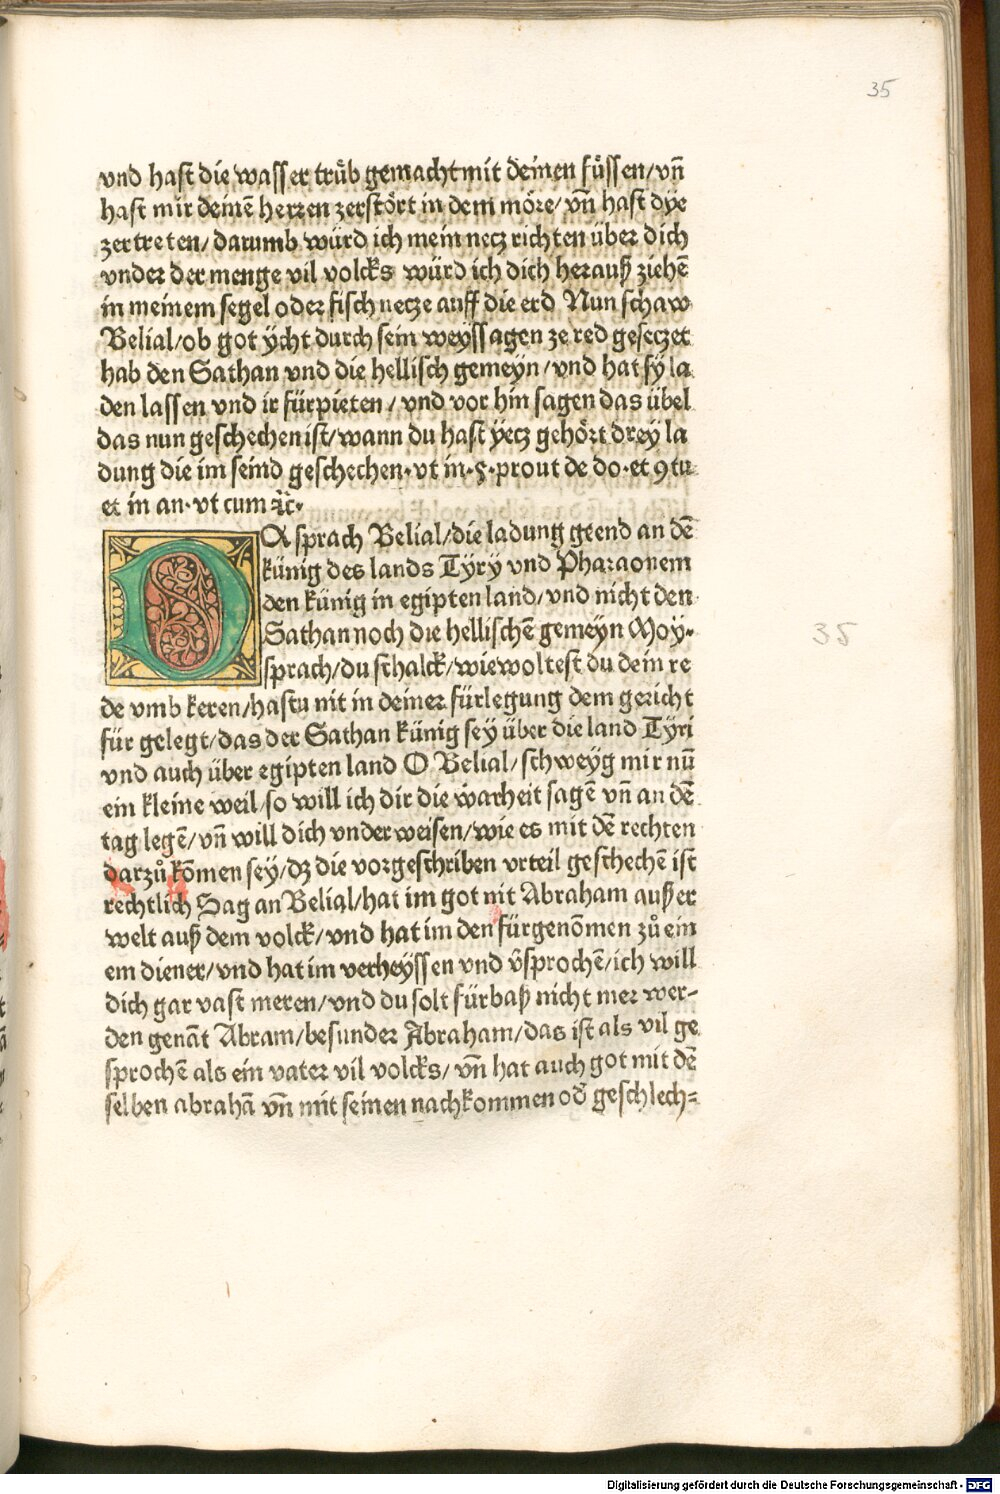 35
vnd hast die wasser trůb gemacht mit deinen fůssen/vñ
hast mir deinē herren zerstört in dem möre/vñ hast dye
zertreten/darumb würd ich mein necz richten über dich
vnder der menge vil volcks würd ich dich herauß ziehē
in meinem segel oder fisch necze auff die erd Nun schaw
Belial/ob got ycht durch sein weyssagen ze red geseczet
hab den Sathan vnd die hellisch gemeyn/vnd hat sy la
den lassen vnd ir fürpieten/vnd vor hin sagen das übel
das nun geschechen ist/wann du hast yecz gehört drey la
dung die im seind geschechen·vt in·§·prout de do·et ꝯtu
et in an·vt cum ꝛc̃·
DA sprach Belial/die ladung geend an dē
künig des lands Tyry vnd Pharaonem
den künig in egipten land/vnd nicht den
Sathan noch die hellischē gemeyn Moy·
sprach/du schalck/wie woltest du dein re
de vmb keren/hastu nit in deiner fürlegung dem gericht
für gelegt/das der Sathan künig sey über die land Tyri
vnd auch über egipten land O Belial/schweyg mir nū
ein kleine weil/so will ich dir die warheit sagē vñ an dē
tag legē/vñ will dich vnder weisen/wie es mit dē rechten
darzů kōmen sey/dz die vorgeschriben vrteil geschechē ist
rechtlich Sag an Belial/hat im got nit Abraham ausser
welt auß dem volck/vnd hat im den fürgenōmen zů ein
em diener/vnd hat im verheyssen vnd v̓sprochē/ich will
dich gar vast meren/vnd du solt fürbaß nicht mer wer-
den genāt Abram/besunder Abraham/das ist als vil ge
sprochē als ein vater vil volcks/vñ hat auch got mit dē
selben abrahā vñ mit seinen nachkommen od̓ geschlech=
35
Digitalisierung gefördert durch die Deutsche Forschungsgemeinschaft - DFG